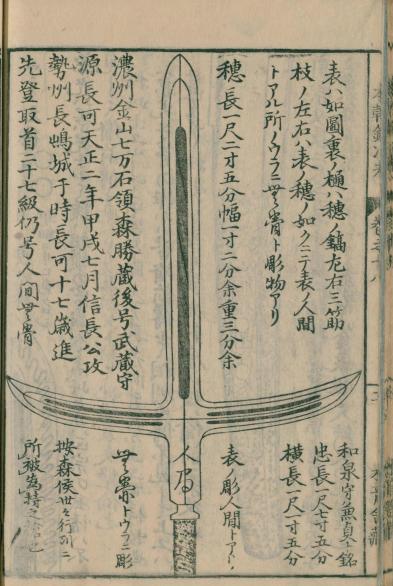 表ハ如圖裏ハ樋ハ穗ノ鎬左右三筋
枝ノ左右ハ表ノ穗ノ如クニテ表ノ人間
トアル所ノウラニ無骨ト彫物アリ
穗長一尺二寸五分幅一寸二分余重三分余
濃州金山七万石領森勝蔵後号武蔵守
源長可天正二年甲戌七月信長公攻
勢州長嶋城于時長可十七歳進
先登取首二十七級仍号人間無骨
和泉守兼貞ノ銘
忠長一尺七寸五分
横長一尺一寸五分
表ノ彫人間トアリ
人間
無骨トウラニ彫
按森侯世々行列ニ
所被為持之